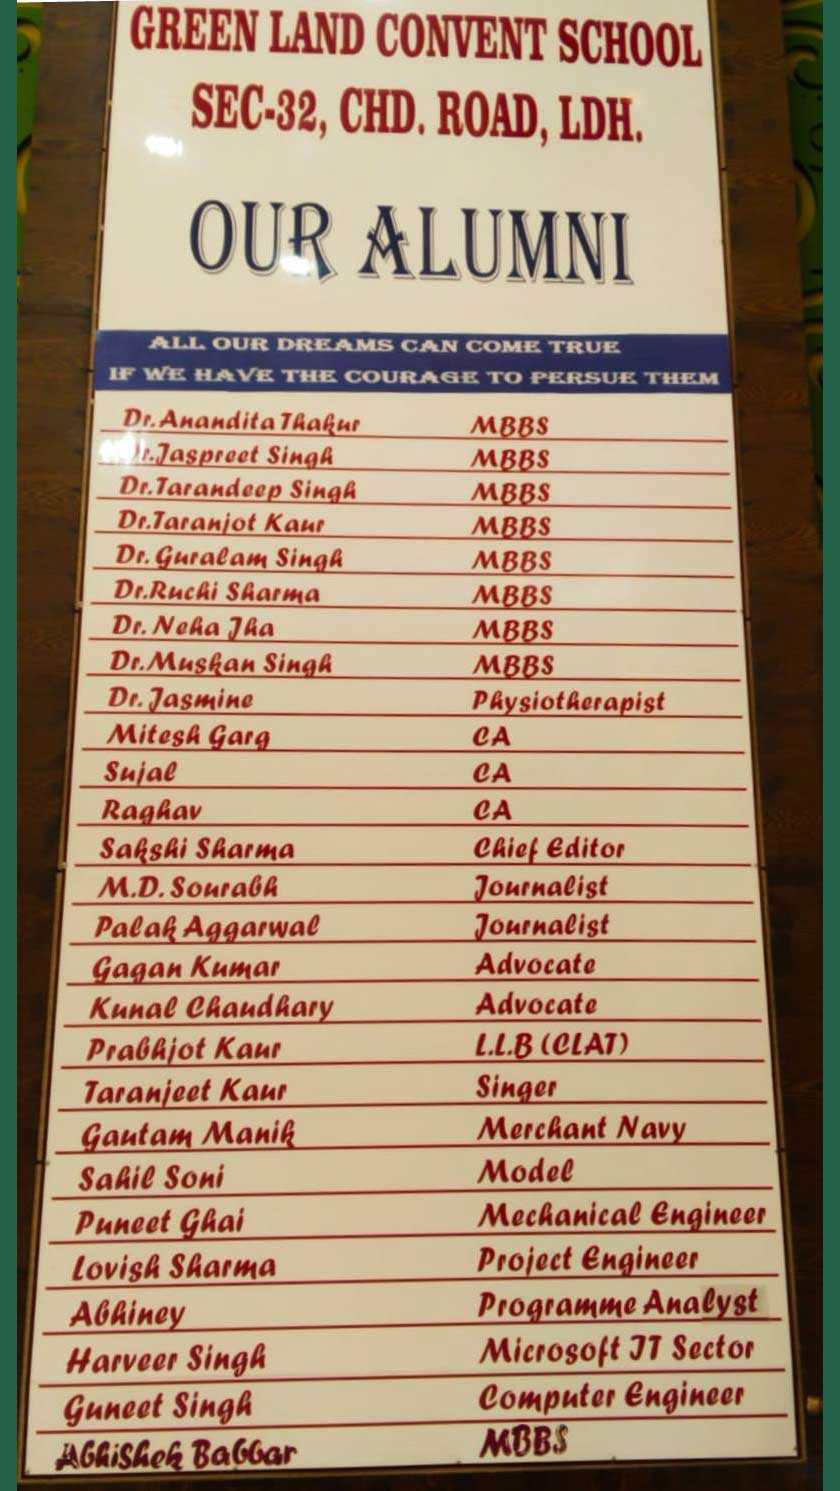 GREEN LAND CONVENT SCHOOL
SEC-32, CHD. ROAD, LDH.
OUR ALUMNI
ALL OUR DREAMS CAN COME TRUE
IF WE HAVE THE COURAGE TO PERSUE THEM
Dr.Anandita Thakur MBBS
Dr.Jaspreet Singh MBBS
Dr.Tarandeep Singh MBBS
Dr.Taranjot Kaur MBBS
Dr. Guralam Singh MBBS
Dr.Ruchi Sharma MBBS
Dr. Neha Jha MBBS
Dr.Muskan Singh MBBS
Dr. Jasmine Physiotherapist
Mitesh Garg CA
Sujal CA
Raghav CA
Sakshi Sharma Chief Editor
M.D. Sourabh Journalist
Palak Aggarwal Journalist
Gagan Kumar Advocate
Kunal Chaudhary Advocate
Prabhjot Kaur L.L.B (CLAT)
Taranjeet Kaur Singer
Gautam Manik Merchant Navy
Sahil Soni Model
Puneet Ghai Mechanical Engineer
Lovish Sharma Project Engineer
Abhiney Programme Analyst
Harveer Singh Microsoft IT Sector
Guneet Singh Computer Engineer
AbhiShek Babbar MBBS